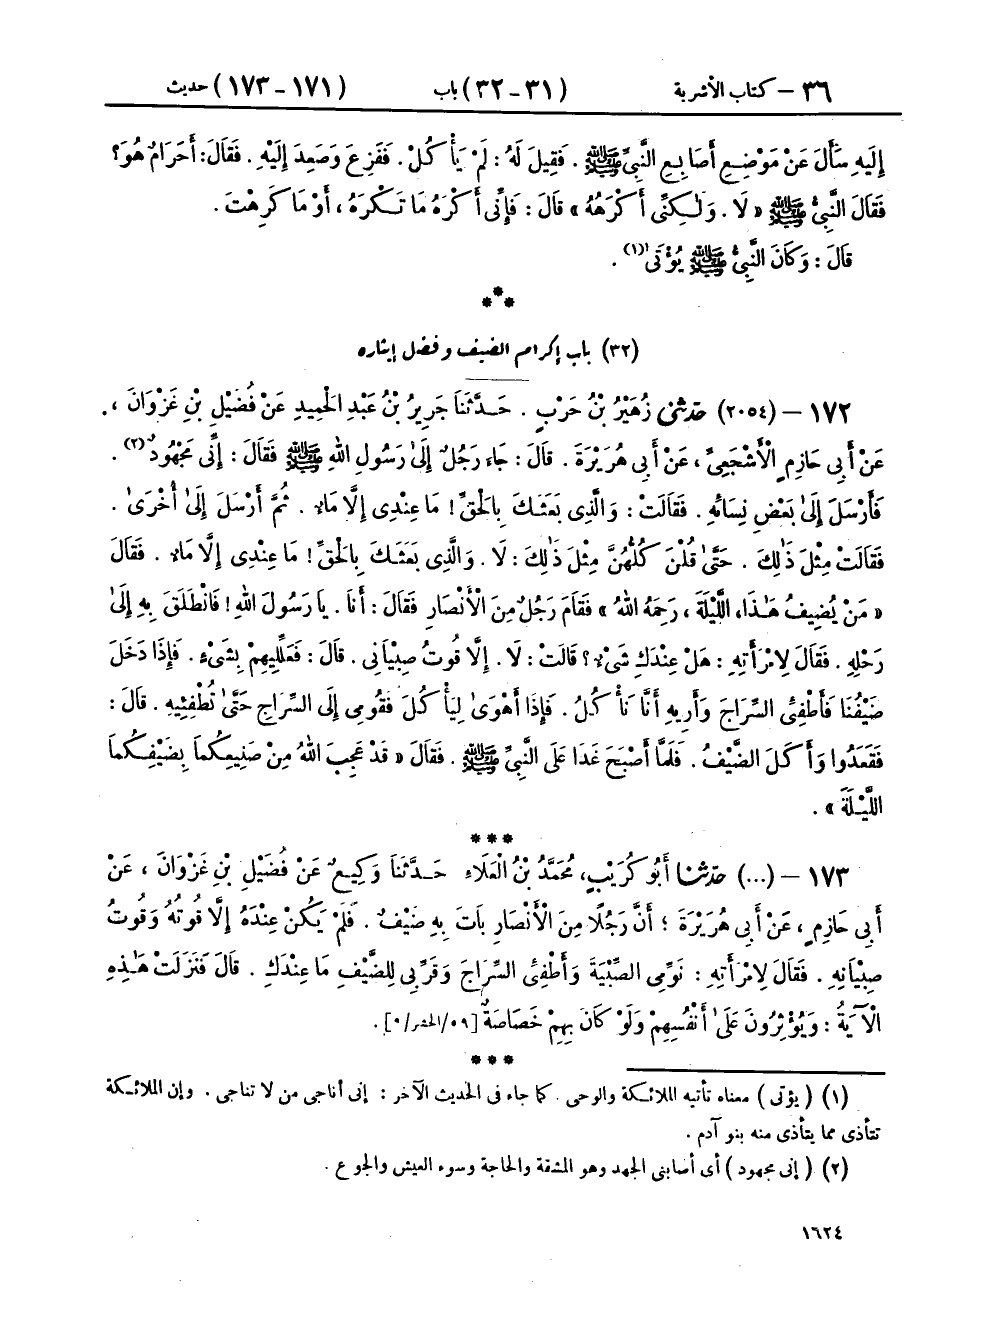 ٣٦ – كتاب الأشربة (٣١-٣٢) باب (١٧١-١٧٣) حديث
إِلَيْهِ سَأَلَ عَنْ مَوْضِعِ أَصَابِعِ النَّبِيِّ ﷺ . فَقِيلَ لَهُ : لَمْ يَأْكُلْ . فَفَزِعَ وَصَعِدَ إِلَيْهِ . فَقَالَ : أَحَرَامٌ هُوَ ؟
فَقَالَ النَّبِيُّ ﷺ « لَا . وَلَـٰكِنِّي أَكْرَهُهُ » قَالَ : فَإِنِّي أَكْرَهُ مَا تَكْرَهُ ، أَوْ مَا كَرِهْتَ .
قَالَ : وَكَانَ النَّبِيُّ ﷺ يُؤْتَىٰ(١) .
***
(٣٢) باب إكرام الضيف وفضل إيثاره
١٧٢ – (٢٠٥٤) حَدَّثَنِي زُهَيْرُ بْنُ حَرْبٍ . حَدَّثَنَا جَرِيرُ بْنُ عَبْدِ الْحَمِيدِ عَنْ فُضَيْلِ بْنِ غَزْوَانَ ،
عَنْ أَبِي حَازِمٍ الْأَشْجَعِيِّ ، عَنْ أَبِي هُرَيْرَةَ . قَالَ : جَاءَ رَجُلٌ إِلَىٰ رَسُولِ اللهِ ﷺ فَقَالَ : إِنِّي مَجْهُودٌ(٢) .
فَأَرْسَلَ إِلَىٰ بَعْضِ نِسَائِهِ . فَقَالَتْ : وَالَّذِي بَعَثَكَ بِالْحَقِّ ! مَا عِنْدِي إِلَّا مَاءٌ . ثُمَّ أَرْسَلَ إِلَىٰ أُخْرَىٰ .
فَقَالَتْ مِثْلَ ذَٰلِكَ . حَتَّىٰ قُلْنَ كُلُّهُنَّ مِثْلَ ذَٰلِكَ : لَا . وَالَّذِي بَعَثَكَ بِالْحَقِّ ! مَا عِنْدِي إِلَّا مَاءٌ . فَقَالَ
« مَنْ يُضِيفُ هَـٰذَا ، اللَّيْلَةَ ، رَحِمَهُ اللهُ » فَقَامَ رَجُلٌ مِنَ الْأَنْصَارِ فَقَالَ : أَنَا . يَا رَسُولَ اللهِ ! فَانْطَلَقَ بِهِ إِلَىٰ
رَحْلِهِ . فَقَالَ لِامْرَأَتِهِ : هَلْ عِنْدَكِ شَيْءٌ ؟ قَالَتْ : لَا . إِلَّا قُوتُ صِبْيَانِي . قَالَ : فَعَلِّلِيهِمْ بِشَيْءٍ . فَإِذَا دَخَلَ
ضَيْفُنَا فَأَطْفِئِي السِّرَاجَ وَأَرِيهِ أَنَّا نَأْكُلُ . فَإِذَا أَهْوَىٰ لِيَأْكُلَ فَقُومِي إِلَى السِّرَاجِ حَتَّىٰ تُطْفِئِيهِ . قَالَ :
فَقَعَدُوا وَأَكَلَ الضَّيْفُ . فَلَمَّا أَصْبَحَ غَدَا عَلَى النَّبِيِّ ﷺ . فَقَالَ « قَدْ عَجِبَ اللهُ مِنْ صَنِيعِكُمَا بِضَيْفِكُمَا
اللَّيْلَةَ » .
***
١٧٣ – (...) حَدَّثَنَا أَبُو كُرَيْبٍ ، مُحَمَّدُ بْنُ الْعَلَاءِ حَدَّثَنَا وَكِيعٌ عَنْ فُضَيْلِ بْنِ غَزْوَانَ ، عَنْ
أَبِي حَازِمٍ ، عَنْ أَبِي هُرَيْرَةَ ؛ أَنَّ رَجُلًا مِنَ الْأَنْصَارِ بَاتَ بِهِ ضَيْفٌ . فَلَمْ يَكُنْ عِنْدَهُ إِلَّا قُوتُهُ وَقُوتُ
صِبْيَانِهِ . فَقَالَ لِامْرَأَتِهِ : نَوِّمِي الصِّبْيَةَ وَأَطْفِئِي السِّرَاجَ وَقَرِّبِي لِلضَّيْفِ مَا عِنْدَكِ . قَالَ فَنَزَلَتْ هَـٰذِهِ
الْآيَةُ : وَيُؤْثِرُونَ عَلَىٰ أَنْفُسِهِمْ وَلَوْ كَانَ بِهِمْ خَصَاصَةٌ [٥٩/الحشر/٩] .
***
(١) ( يؤتى ) معناه تأتيه الملائكة والوحى . كما جاء فى الحديث الآخر : إنى أناجى من لا تناجى . وإن الملائكة
تتأذى مما يتأذى منه بنو آدم .
(٢) ( إنى مجهود ) أى أصابنى الجهد وهو المشقة والحاجة وسوء العيش والجوع .
١٦٢٤